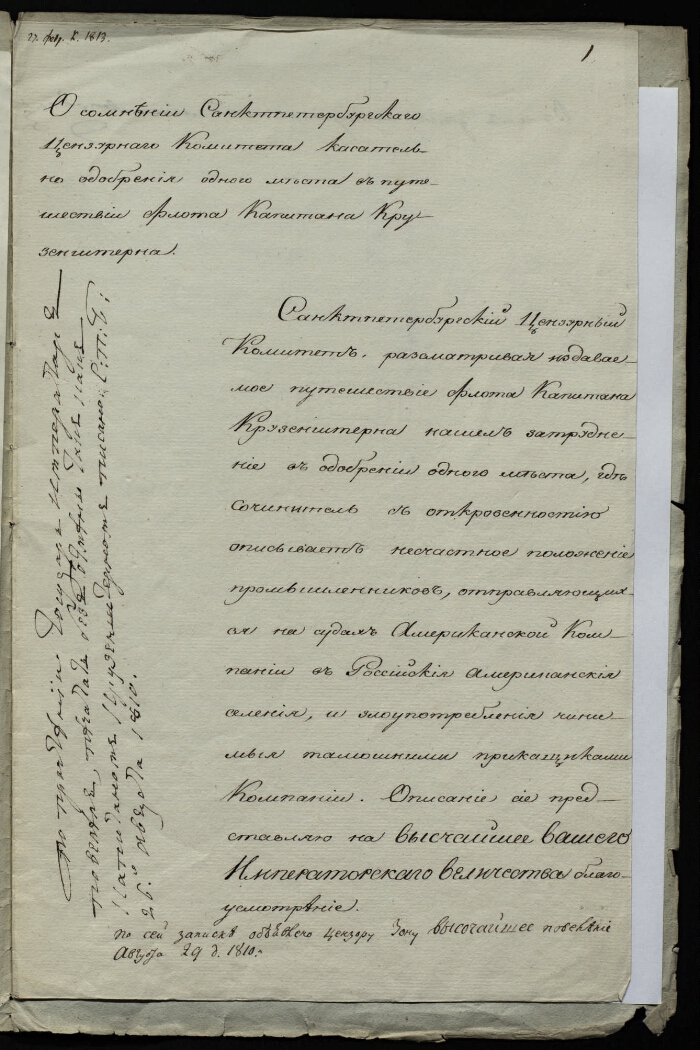 1
О сомнѣніи Санктпетербургскаго
Цензурнаго Комитета касатель-
но одобренія одного мѣста въ путе-
шествіи Флота Капитана Кру-
зенштерна.
Санктпетербургскій Цензурный
Комитетъ, разсматривая издавае-
мое путешествіе Флота Капитана
Крузенштерна нашелъ затрудне-
ніе въ одобреніи одного мѣста, гдѣ
Сочинитель съ откровенностію
описываетъ несчастное положеніе
промышленниковъ, отправляющих-
ся на судахъ Американской Ком-
паніи въ Россійскія Американскія
селенія, и злоупотребленія чини-
мыя тамошними прикащиками
Компаніи. Описаніе сіе пред-
ставляю на высочайшее вашего
Императорскаго величества благо-
усмотрѣніе.
По сей запискѣ объявлено Цензору Зону высочайшее повелѣніе
Августа 29 д. 1810.
Государь Императоръ
повелѣлъ печатать безъ
Капитаномъ Крузенштерномъ писано: С:П:б:
26. августа 1810.